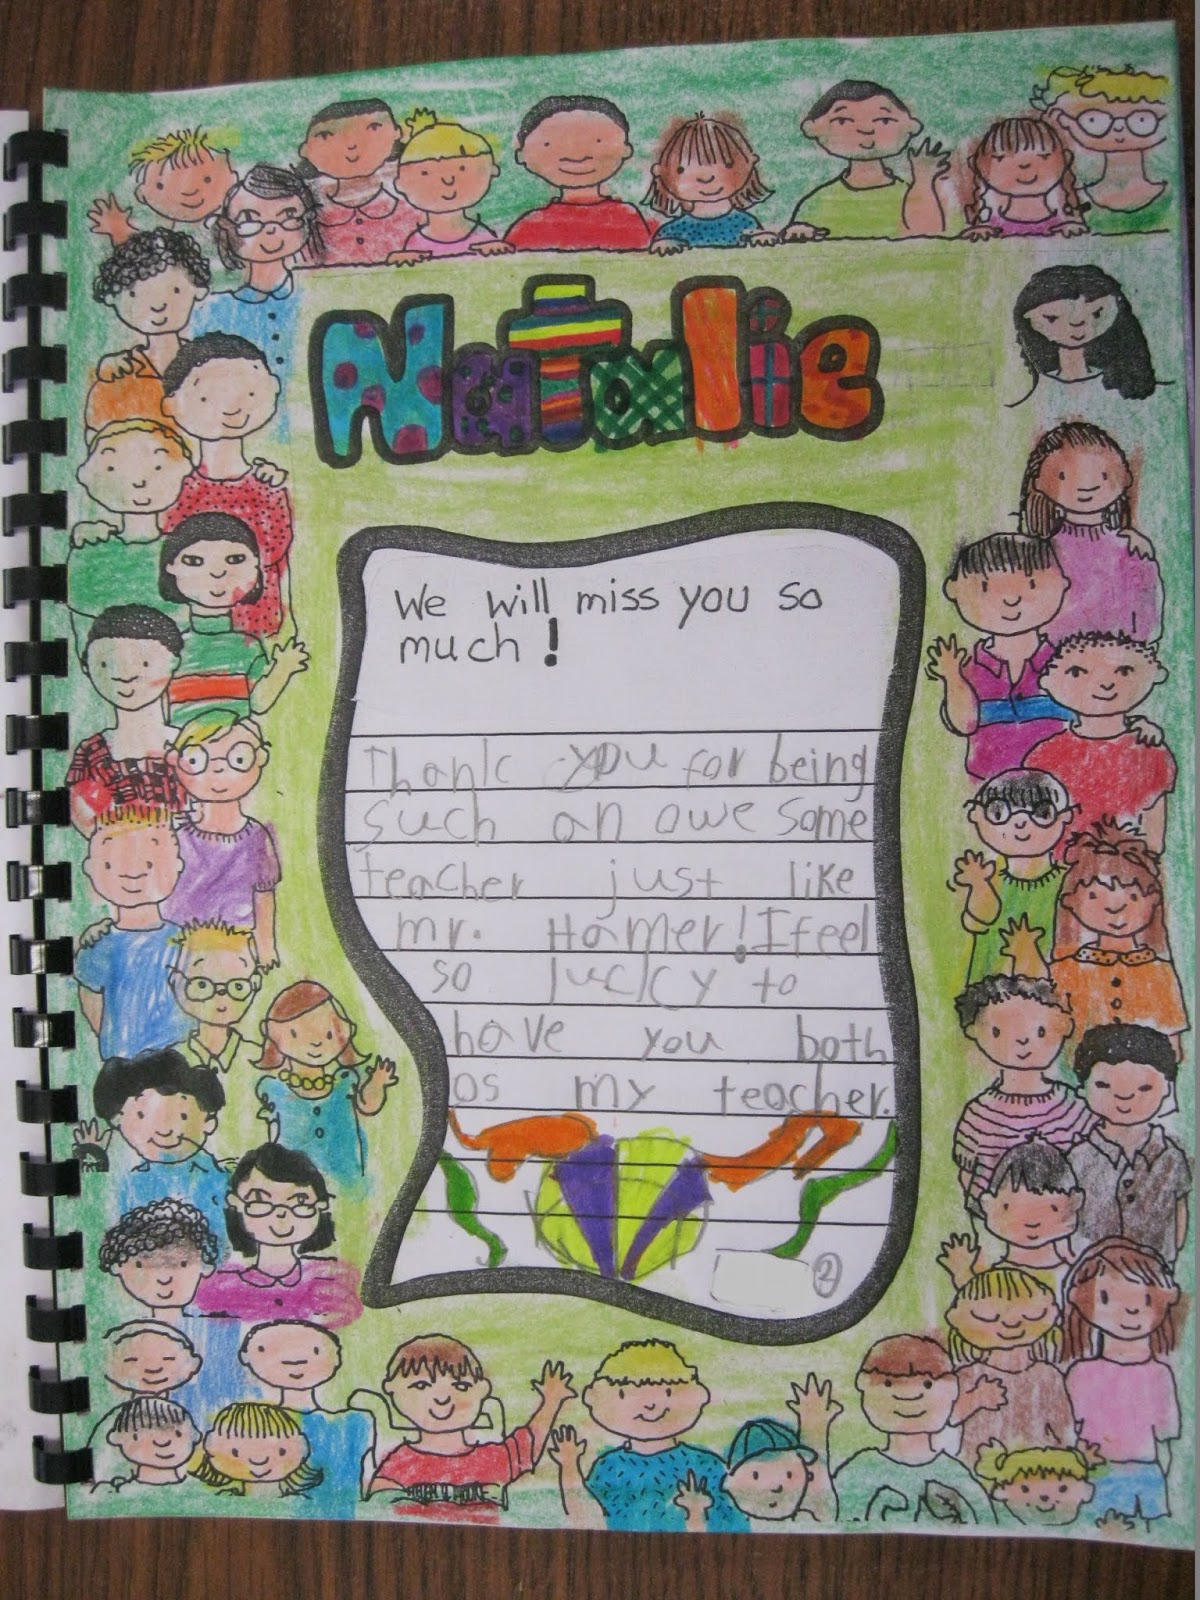 Natalie
We will miss you so
much!
Thank you for being
such an awesome
teacher just like
mr. Hamer! I feel
so lucky to
have you both
as my teacher.
2